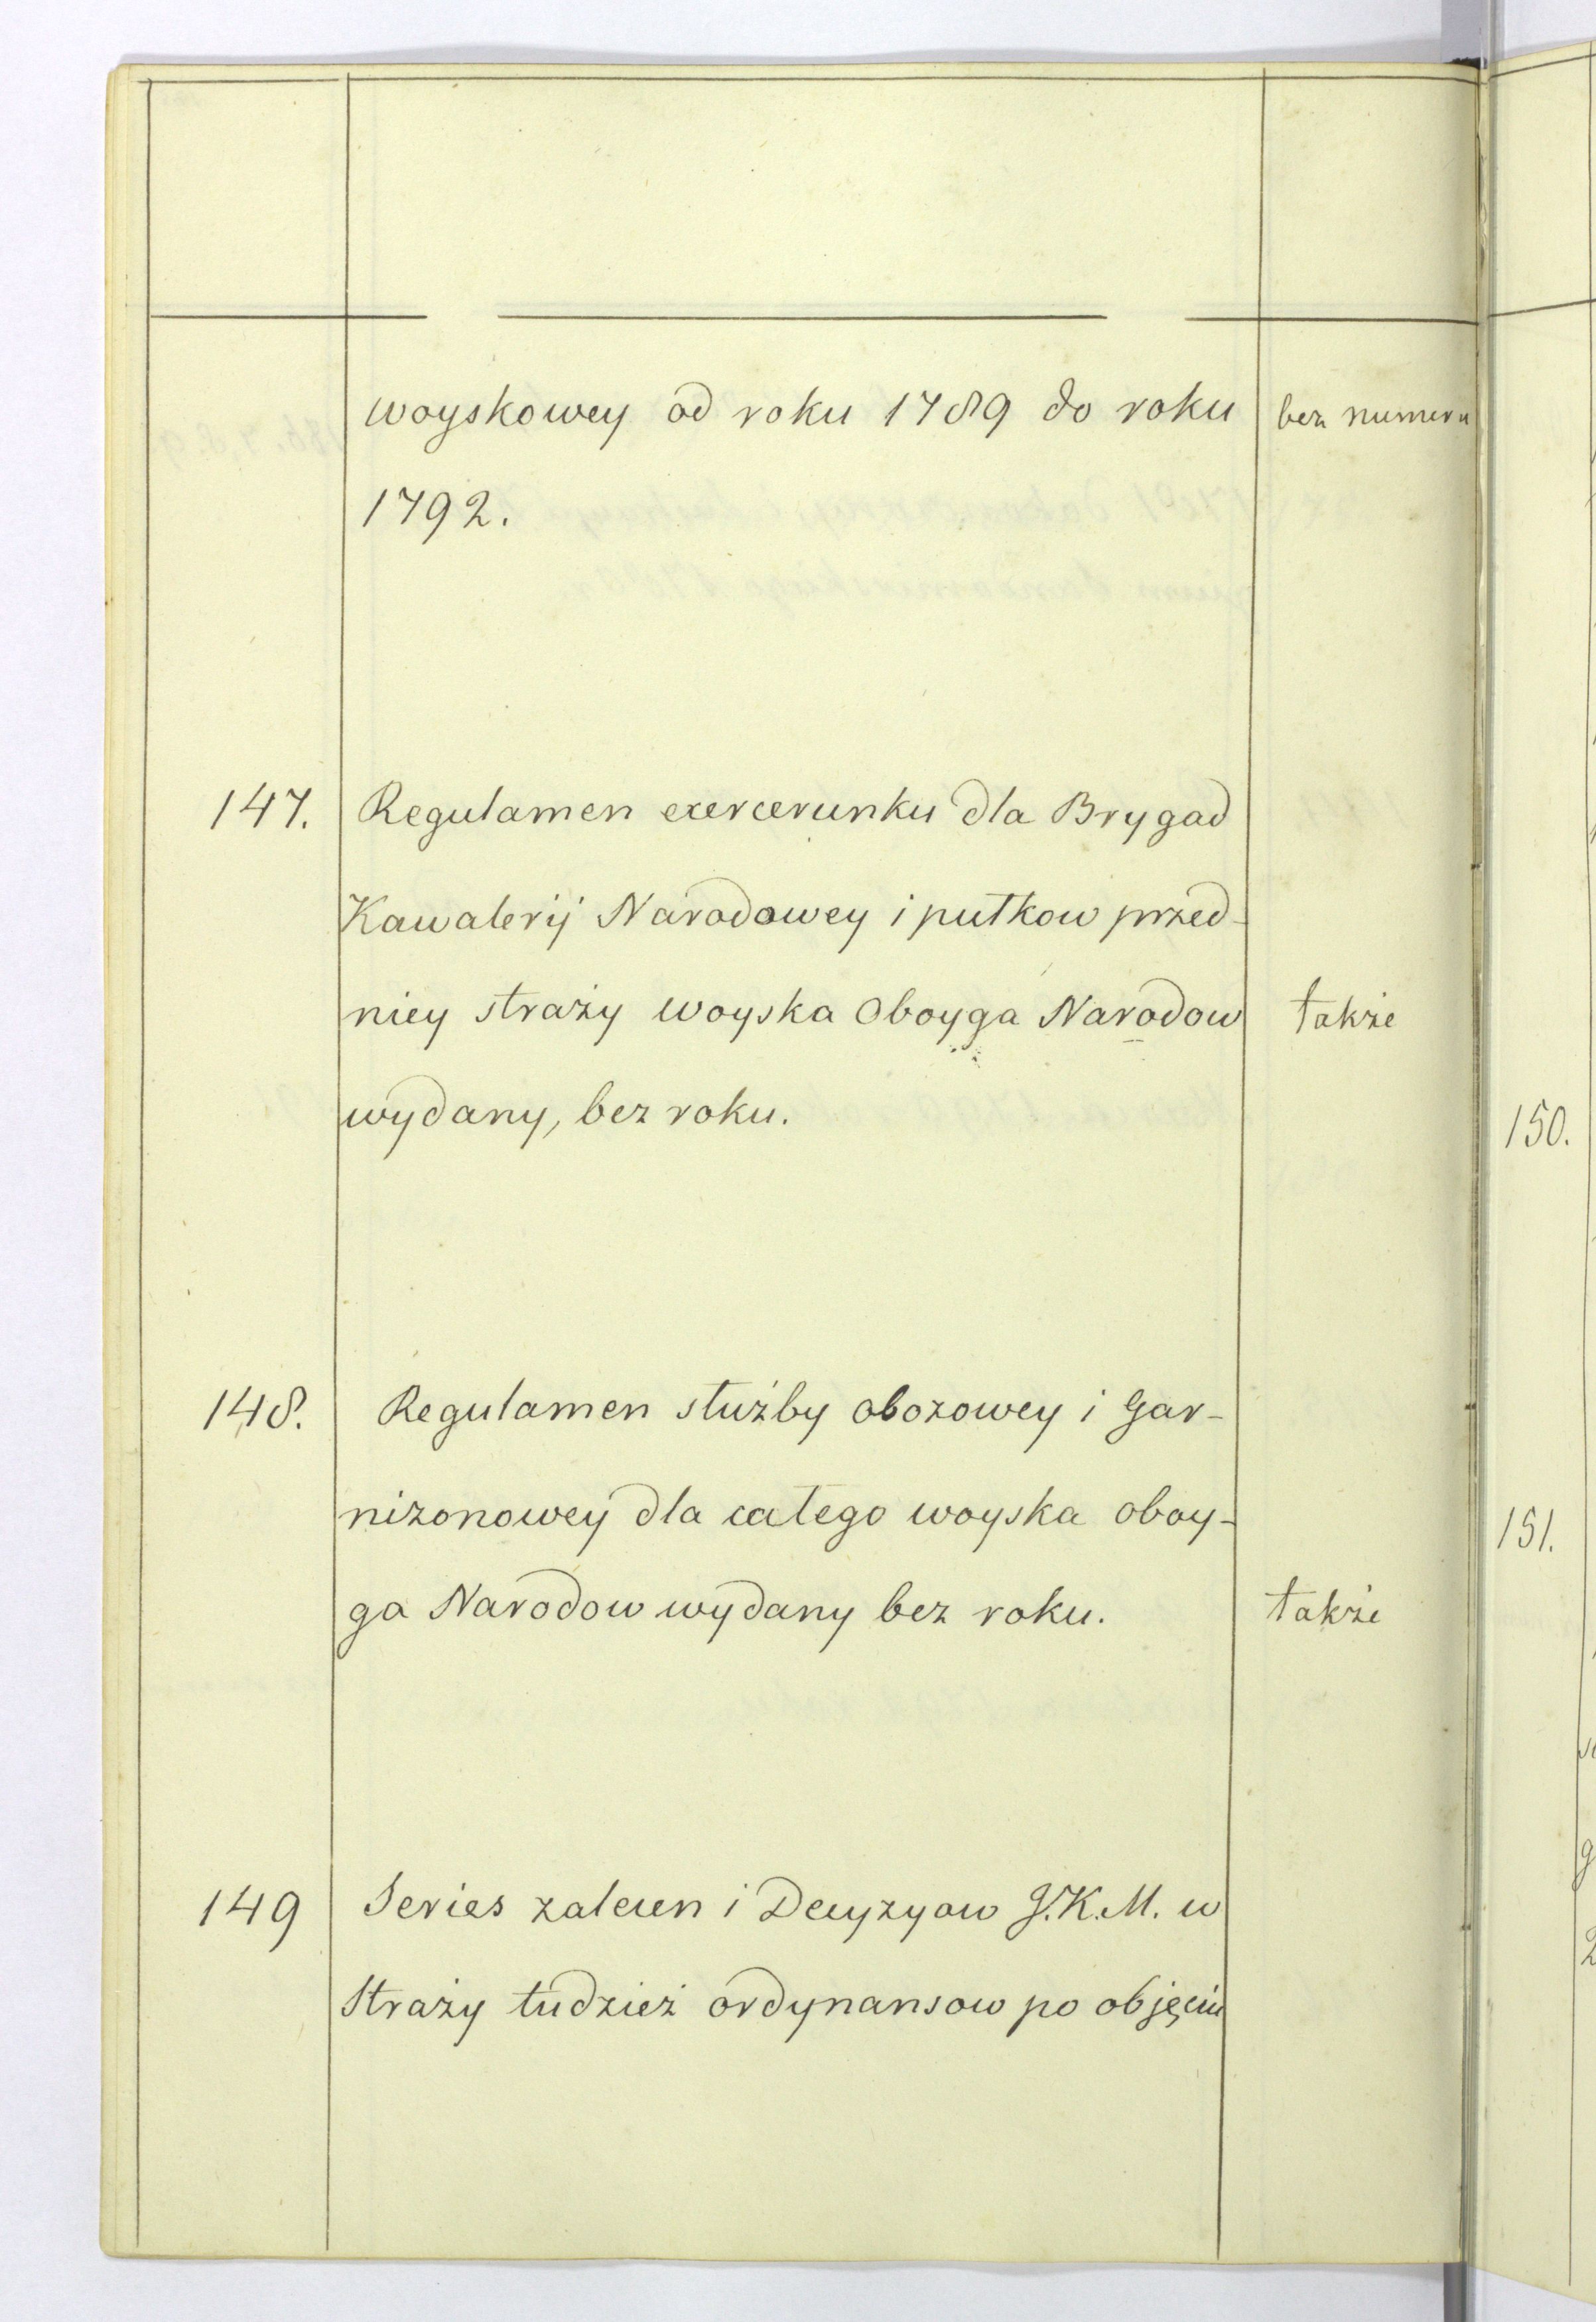 woyskowey od roku 1789 do roku bez numeru
1792.
147. Regulamen exercerunku dla Brygad
Kawalerij Narodowey i pułkow przed-
niey straży woyska Oboyga Narodow także
wydany, bez roku.
148. Regulamen służby obozowey i Gar-
nizonowey dla całego woyska oboy-
ga Narodow wydany bez roku. także
149 Series zalecen i Decyzyow J.K.M. w
Straży tudzież ordynansow po objęciu
150.
151.